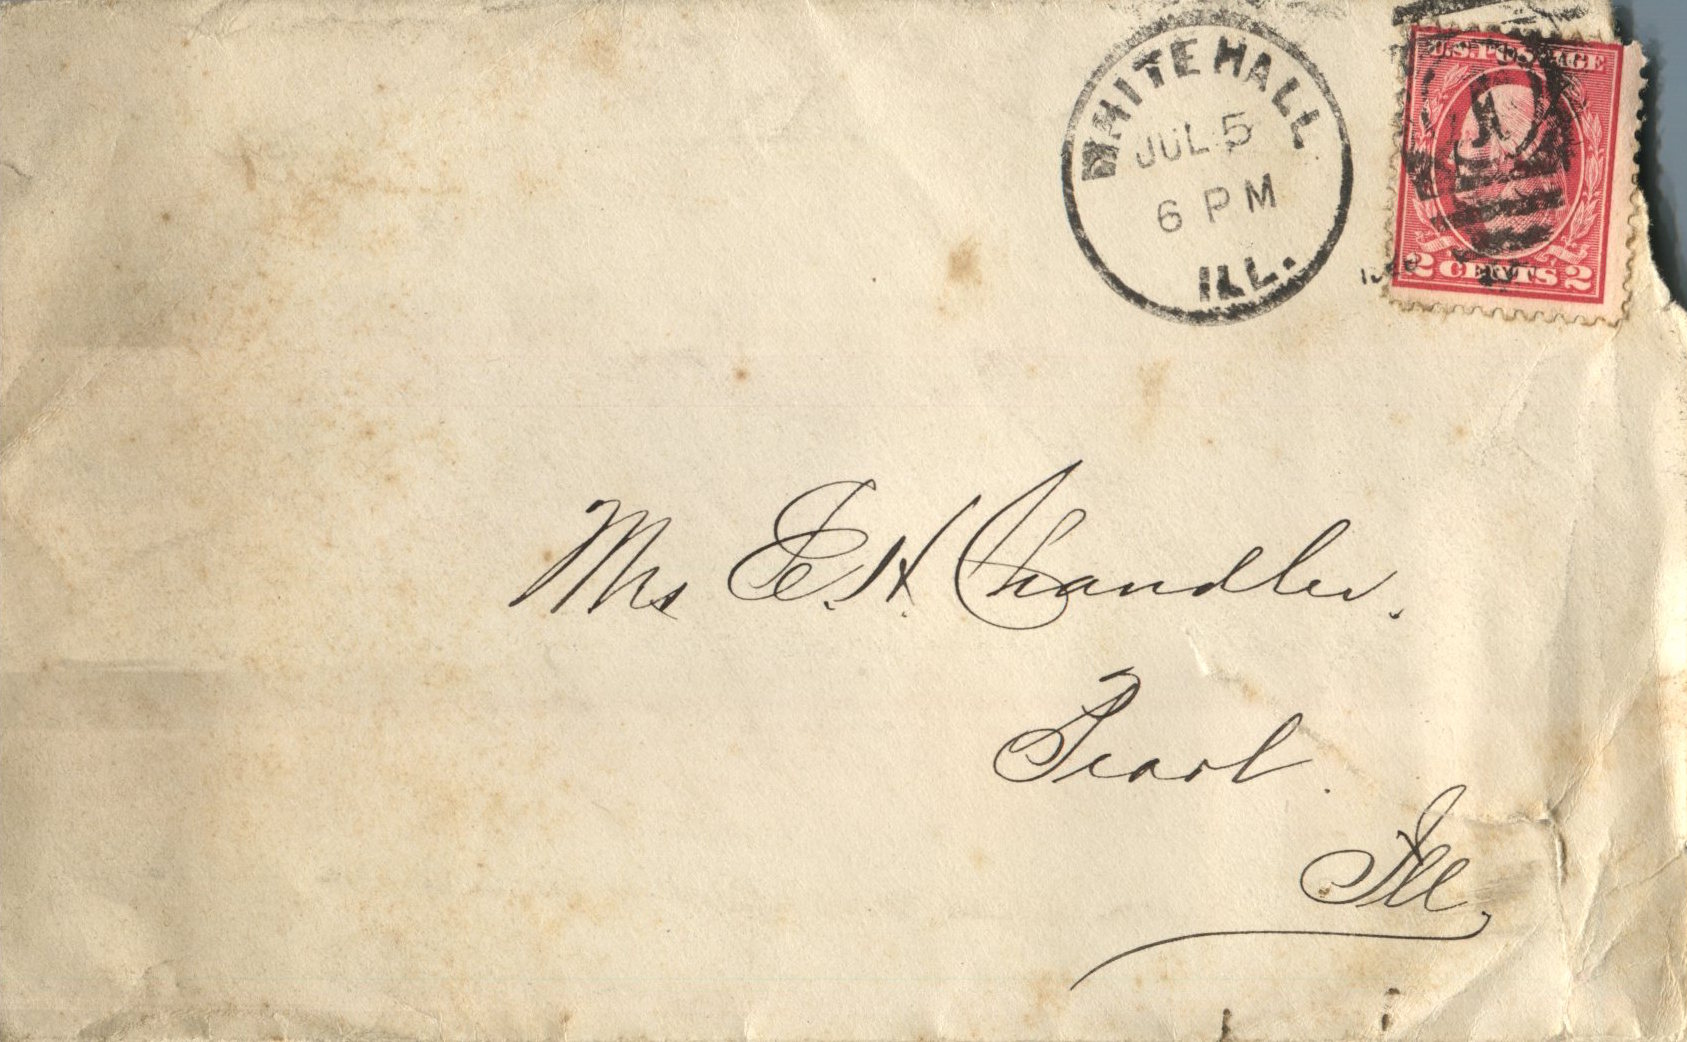 WHITE HALL
JUL 5
6 PM
ILL.
U.S. POSTAGE
2 CENTS 2
Mrs E. H. Chandler.
Pearl.
Ill.